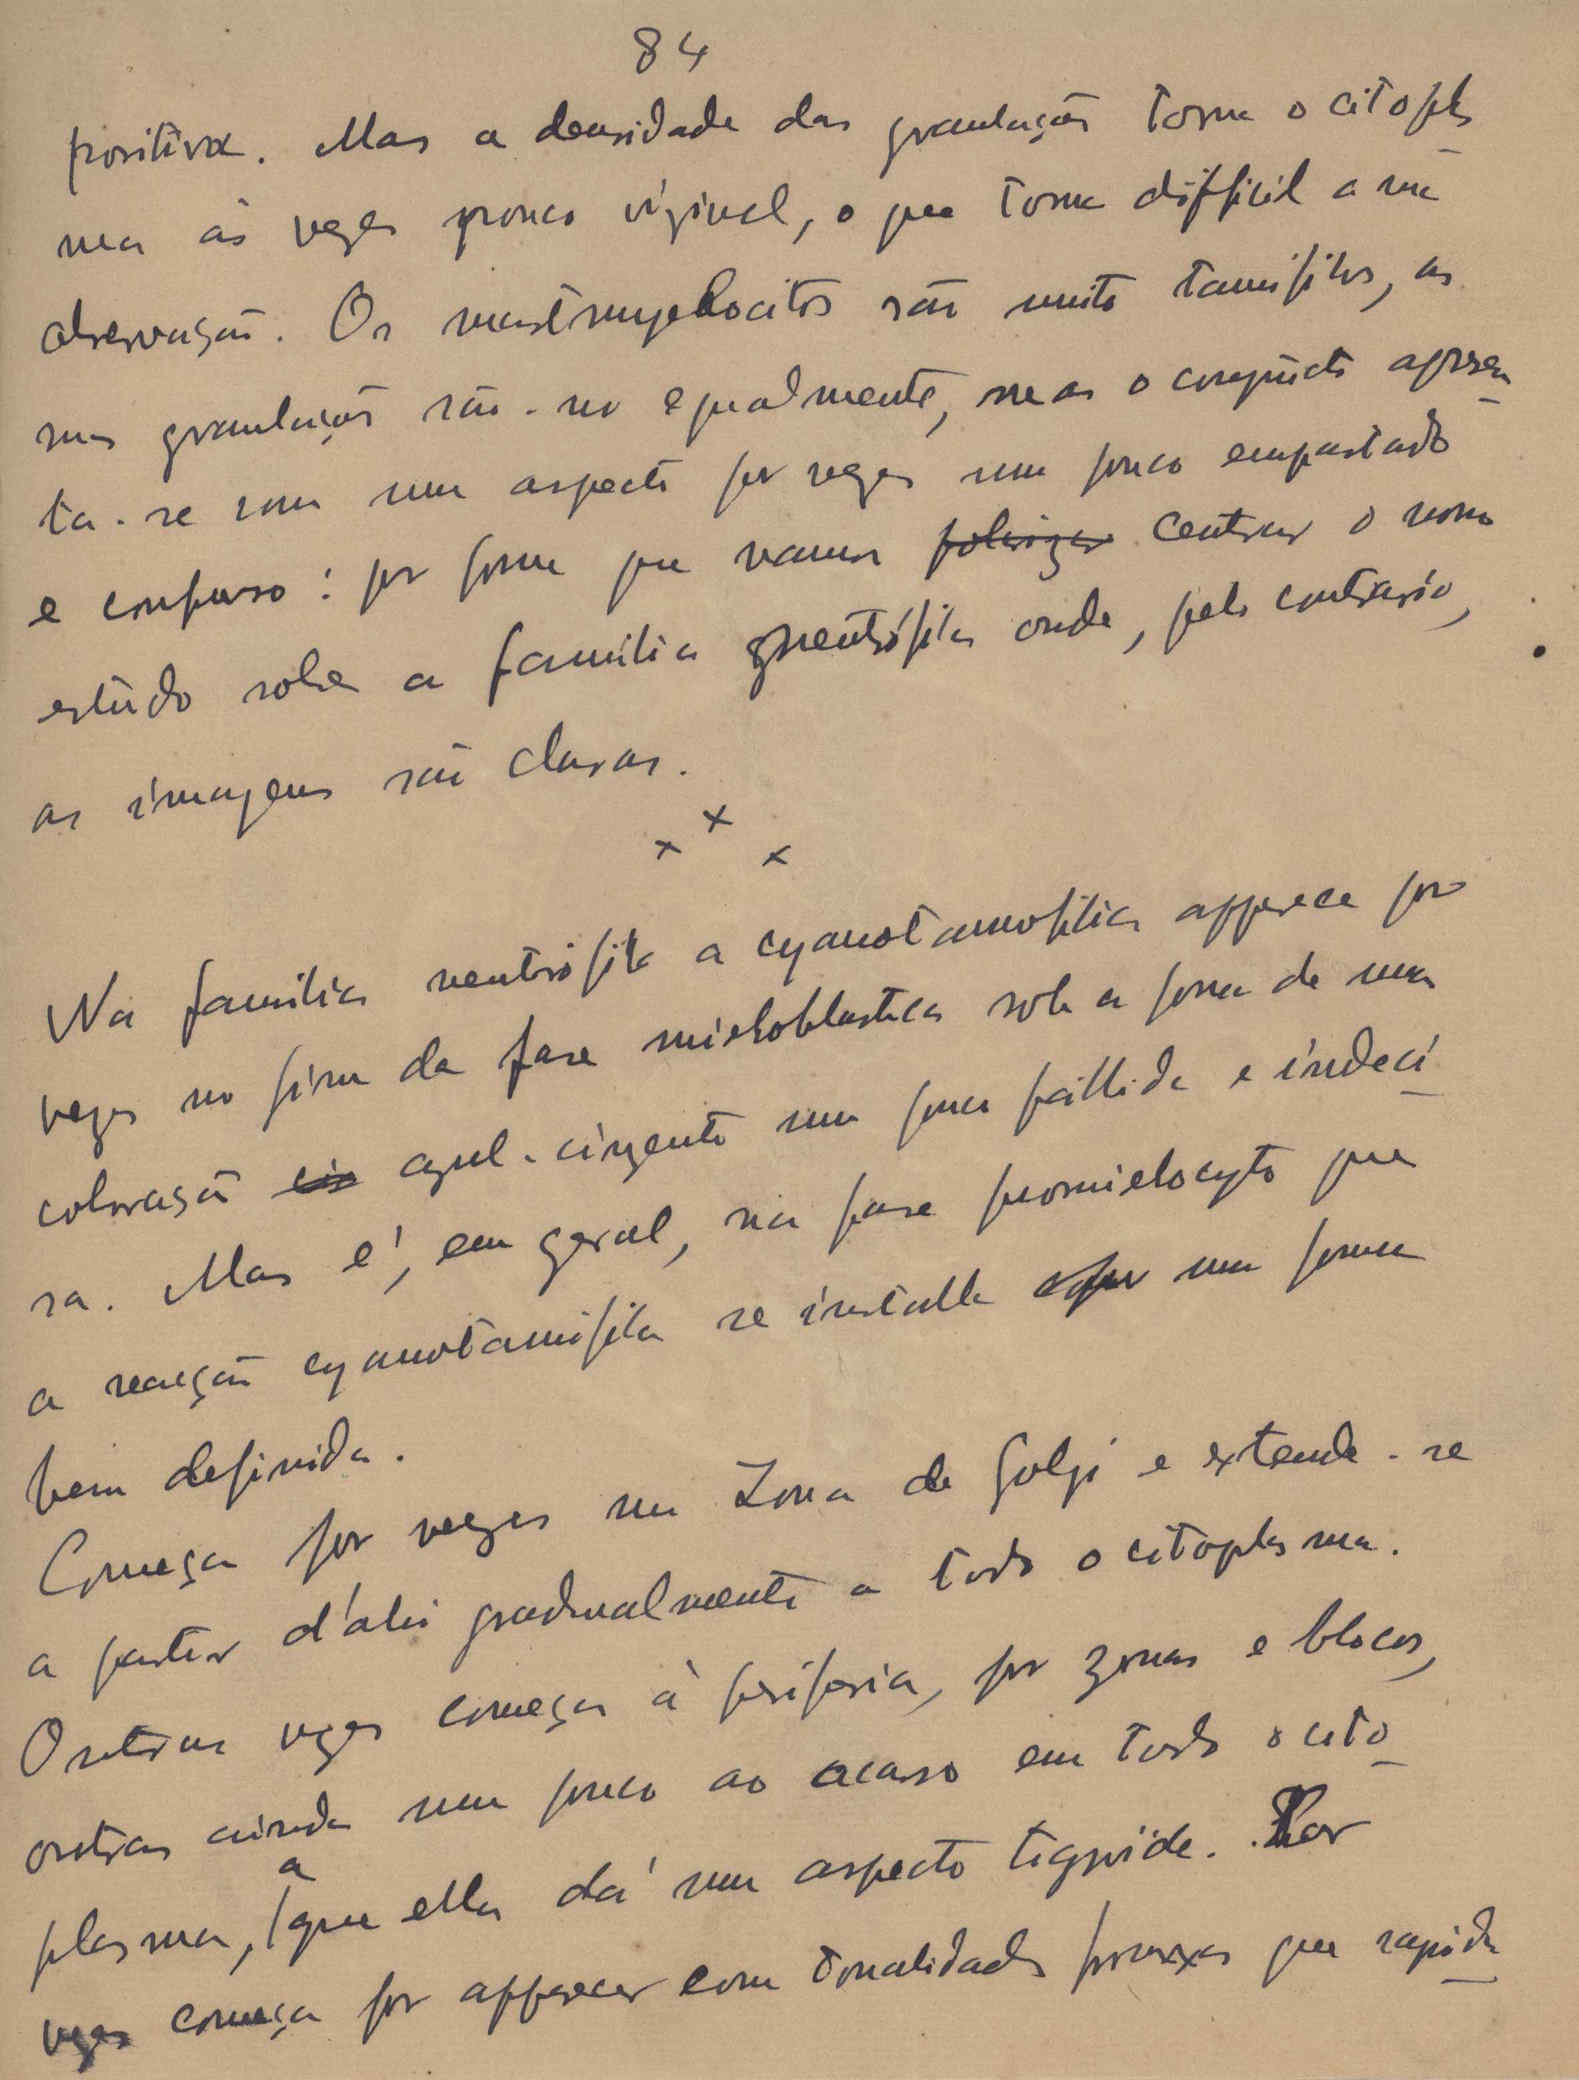 84
positiva. Mas a densidade das granulações torna o citoplas
ma ás vezes pouco vizivel, o que torna difficil a sua
observação. Os mastmyelocitos são muito tanófilos, as
suas granulações são-no egualmente, mas o conjuncto apresen
ta-se com um aspecto por vezes um pouco empastado
e confuso: por forma que vamos polarizar centrar o nosso
estudo sobre a familia neutrófila onde, pelo contrario,
as imagens são claras.
x x x
Na familia neutrófila a cyanotannofilia apparece por
vezes no fim da fase mieloblastica sob a forma de uma
coloração cin azul-cinzento um pouco pállida e indeci
sa. Mas é, em geral, na fase promielocyto que
a reacção cyanotanófila se installa de uma forma
bem definida.
Começa por vezes na Zona de Golgi e extende-se
a partir d'ahi gradualmente a todo o citoplasma.
Outras vezes começa á periferia, por zonas e blocos,
outras ainda um pouco ao acaso em todo o cito
plasma, a que ella dá um aspecto tigroide. Por
vezes começa por apparecer com tonalidades frouxas que rapida